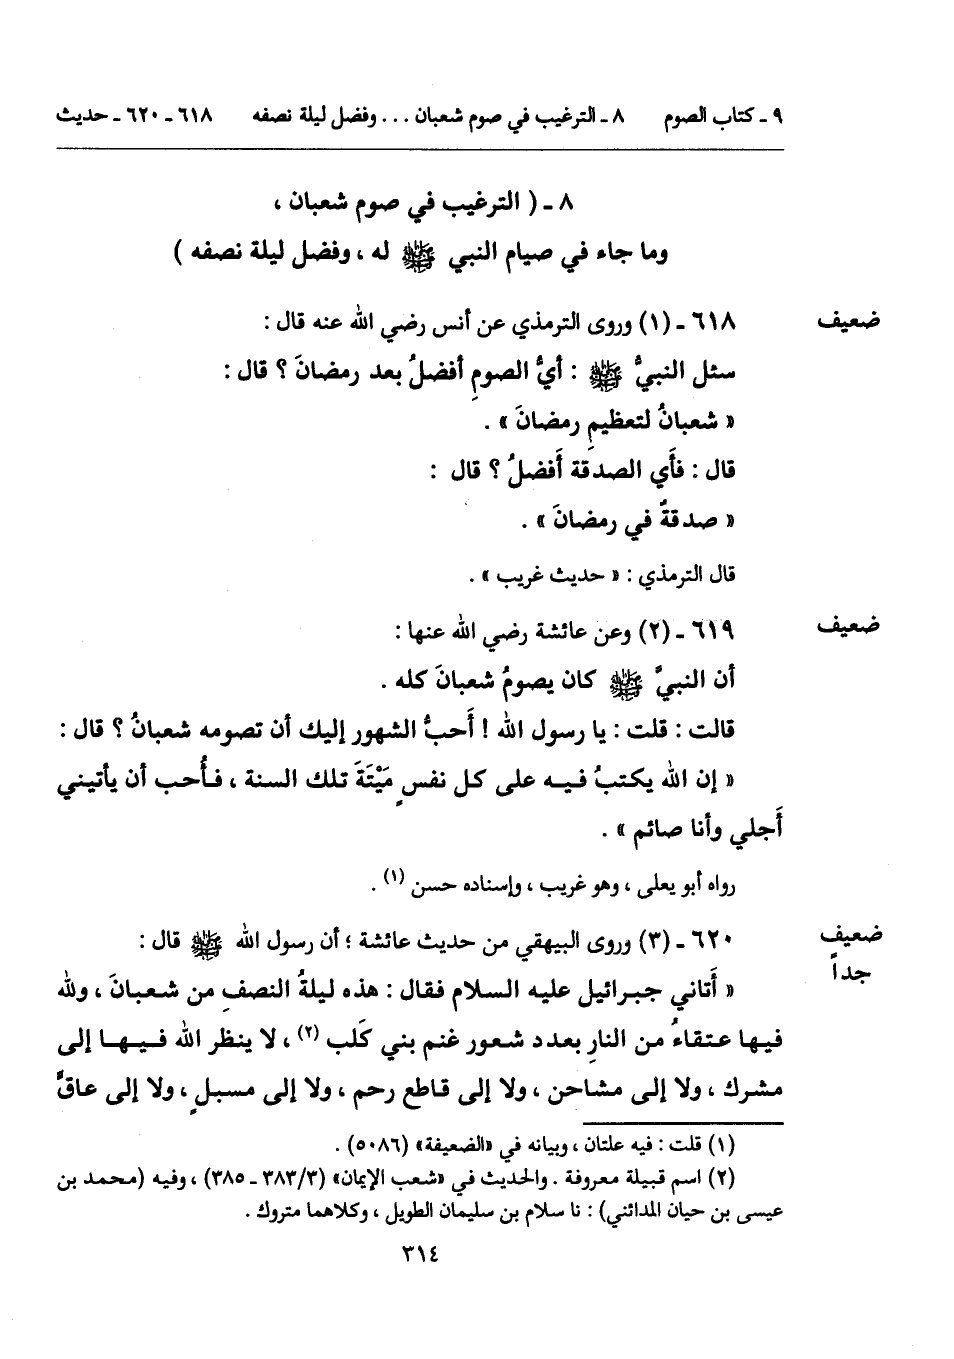 ٩ ـ كتاب الصوم ٨ ـ الترغيب في صوم شعبان . . . وفضل ليلة نصفه ٦١٨ ـ ٦٢٠ ـ حديث
٨ ـ ( الترغيب في صوم شعبان ،
وما جاء في صيام النبي ﷺ له ، وفضل ليلة نصفه )
ضعيف ٦١٨ ـ (١) وروى الترمذي عن أنس رضي الله عنه قال :
سئل النبيُّ ﷺ : أيُّ الصومِ أفضلُ بعد رمضانَ ؟ قال :
« شعبانُ لتعظيمِ رمضانَ » .
قال : فأَي الصدقة أَفضلُ ؟ قال :
« صدقةٌ في رمضانَ » .
قال الترمذي : « حديث غريب » .
ضعيف ٦١٩ ـ (٢) وعن عائشة رضي الله عنها :
أن النبيَّ ﷺ كان يصومُ شعبانَ كله .
قالت : قلت : يا رسول الله ! أَحبُّ الشهور إليك أن تصومه شعبانُ ؟ قال :
« إن الله يكتبُ فيه على كل نفسٍ مَيْتَةَ تلك السنة ، فأُحب أن يأتيني
أَجلي وأنا صائم » .
رواه أبو يعلى ، وهو غريب ، وإسناده حسن (١) .
ضعيف جداً ٦٢٠ ـ (٣) وروى البيهقي من حديث عائشة ؛ أن رسول الله ﷺ قال :
« أَتاني جبرائيل عليه السلام فقال : هذه ليلةُ النصفِ من شعبانَ ، ولله
فيها عتقاءُ من النارِ بعدد شعور غنم بني كَلب (٢) ، لا ينظر الله فيها إلى
مشرك ، ولا إلى مشاحن ، ولا إلى قاطع رحم ، ولا إلى مسبلٍ ، ولا إلى عاقٍّ
(١) قلت : فيه علتان ، وبيانه في «الضعيفة» (٥٠٨٦) .
(٢) اسم قبيلة معروفة . والحديث في «شعب الإيمان» (٣/ ٣٨٣ ـ ٣٨٥) ، وفيه (محمد بن
عيسى بن حيان المدائني) : نا سلام بن سليمان الطويل ، وكلاهما متروك .
٣١٤